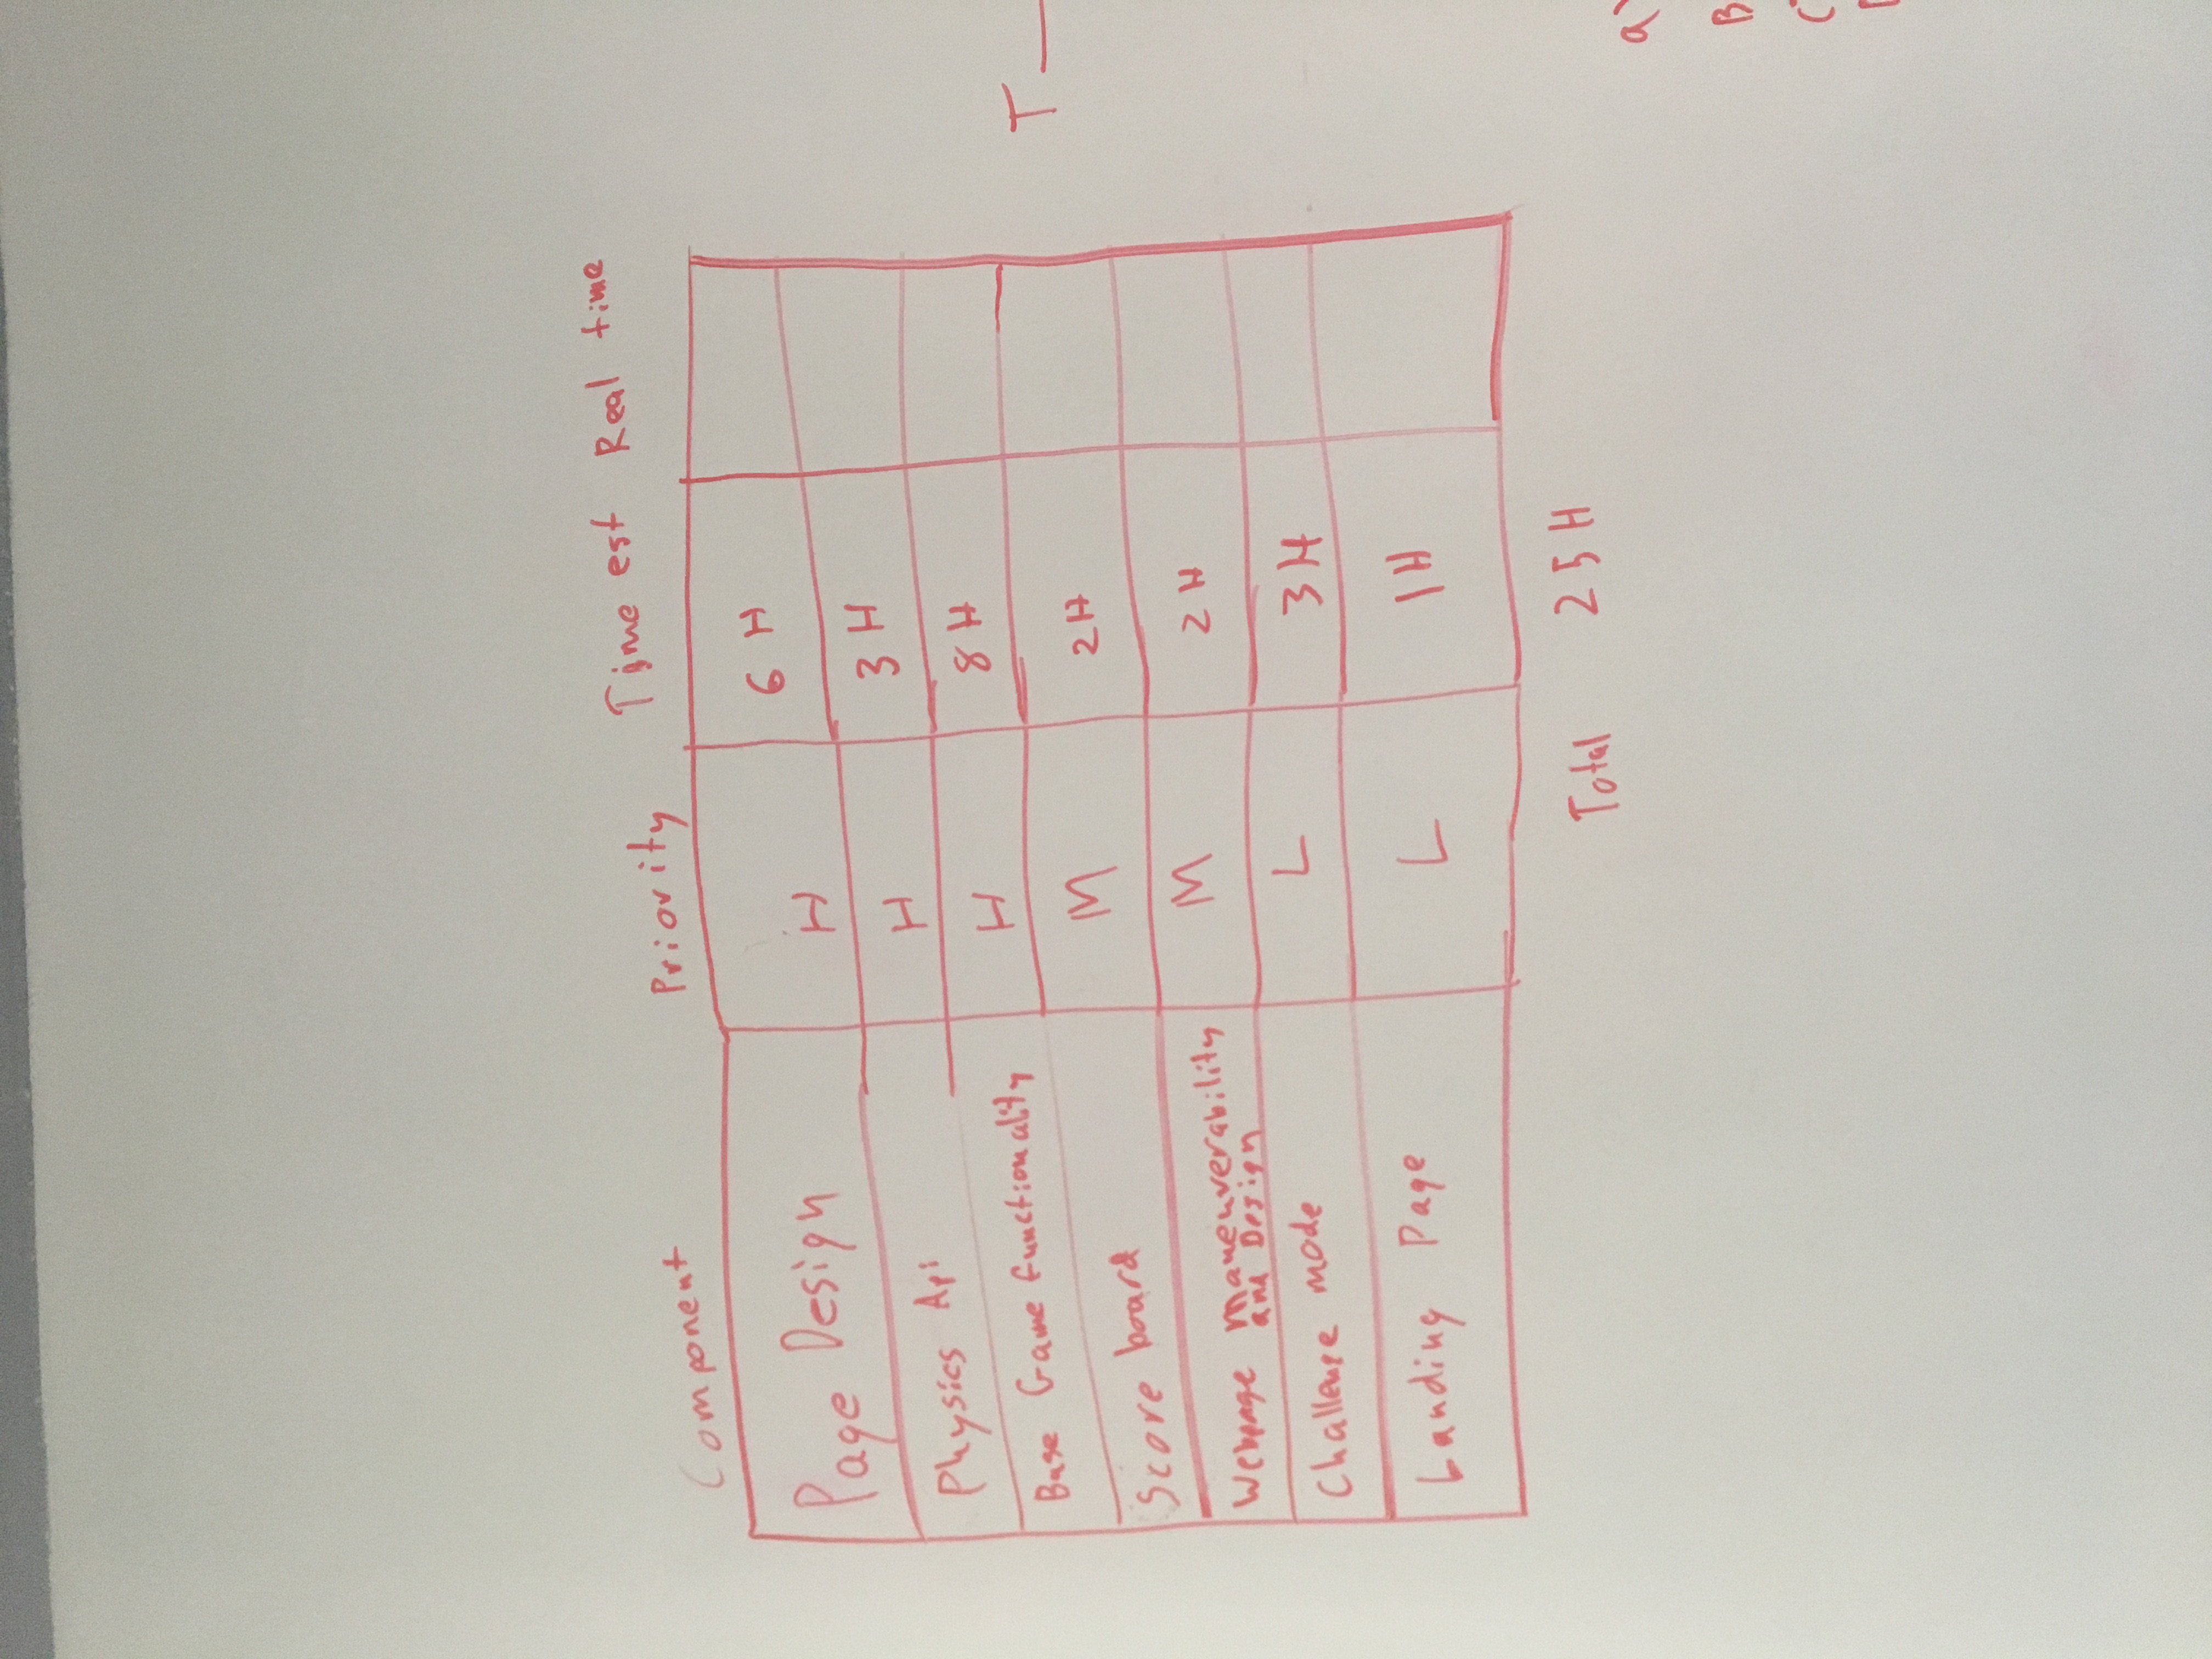 Component Priority Time est Real time
Page Design H 6 H
Physics Api H 3 H
Base Game functionality H 8 H
Score board M 2 H
Webpage maneuverability M 2 H
and Design
Challenge mode L 3 H
Landing Page L 1 H
Total 25 H
T
a)
B
C